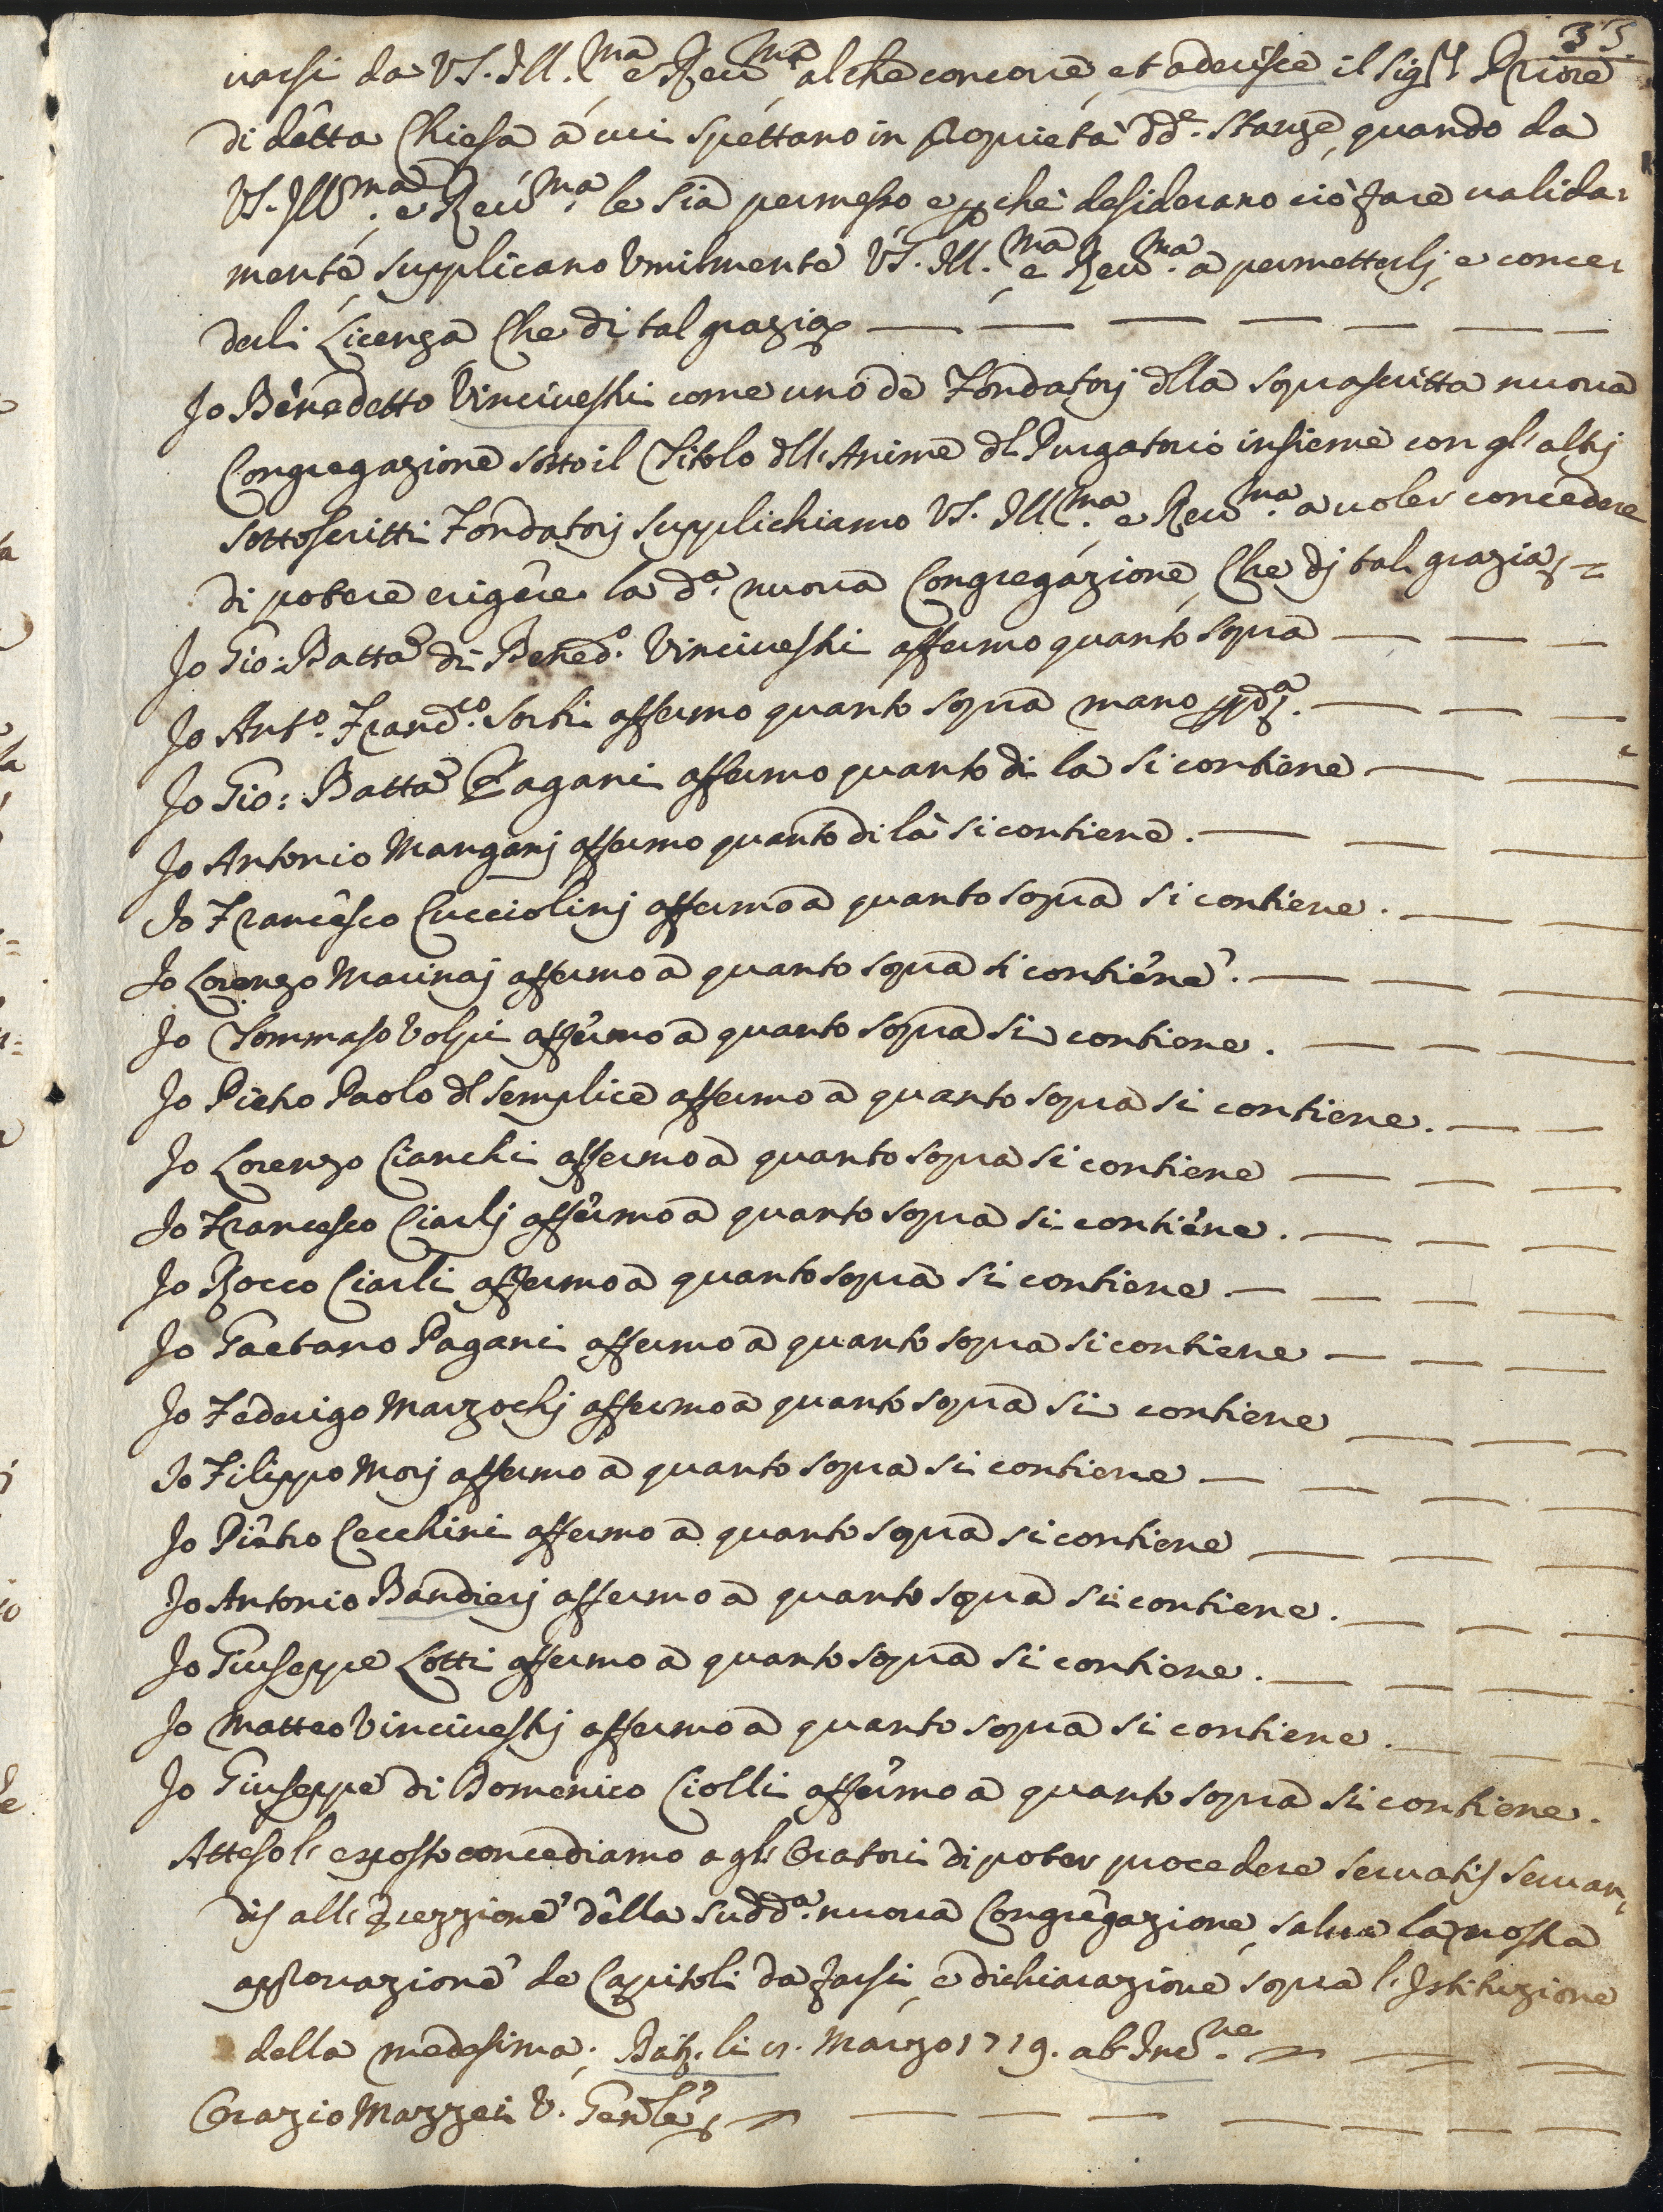 33.
uarsi da VS. Ill.ma e Reu.ma al che concorre, et aderisce il Sig.r Priore
di detta Chiesa à cui spettano in propietà dd.e Stanze, quando da
VS. Ill.ma e Reu.ma le sia permesso e perche desiderano ciò fare ualida-
mente, supplicano Vmilmente VS. Ill.ma e Reu.ma a permetterlj, e conce-
derli Licenza Che di tal grazia
Io Benedetto Vinciueshi come uno de Fondatorj della soprascritta nuoua
Congregazione sotto il Titolo dell'Anime del Purgatorio insieme con gl'altrj
sottoscritti Fondatorj supplichiamo VS. Ill.ma e Reu.ma a uoler concedere
di potere erigere la d.a nuoua Congregazione, Che dj tal grazia
Io Gio: Batta di Bened.o Vinciueshi affermo quanto sopra
Io Ant.o Franc.co Sorbi affermo quanto sopra mano pp.a
Io Gio: Batta Pagani affermo quanto di la si contiene
Io Antonio Manganj affermo quanto di là si contiene.
Io Francesco Cucciolinj affermo a quanto sopra si contiene.
Io Lorenzo Marinaj affermo a quanto sopra si contiene.
Io Tommaso Volpi affermo a quanto sopra si contiene.
Io Pietro Paolo del Semplice affermo a quanto sopra si contiene.
Io Lorenzo Cianchi affermo a quanto sopra si contiene
Io Francesco Ciarlj affermo a quanto sopra si contiene.
Io Rocco Ciarli affermo a quanto sopra si contiene
Io Gaetano Pagani affermo a quanto sopra si contiene
Io Federigo Marzochj affermo a quanto sopra si contiene
Io Filippo Morj affermo a quanto sopra si contiene
Io Pietro Cecchini affermo a quanto sopra si contiene
Io Antonio Bandierj affermo a quanto sopra si contiene.
Io Giuseppe Lotti affermo a quanto sopra si contiene.
Io Matteo Vinciueshj affermo a quanto sopra si contiene.
Io Giuseppe di Domenico Ciolli affermo a quanto sopra si contiene.
Atteso l'esposto concediamo agl'Oratori di poter procedere seruatis seruan-
dis all'Erezzione della sudd.a nuoua Congregazione, salua la nostra
approuazione de Capitoli da farsi, e dichiarazione sopra l'Istituzione
della medesima; li Marzo 1719. ab Inc.ne
Orazio Mazzei V. Gen.le